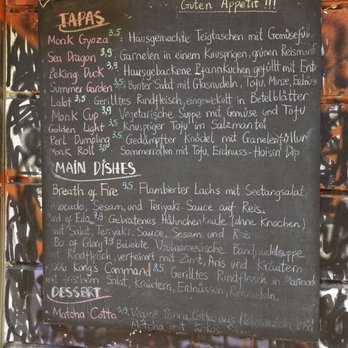 Guten Appetit !!!
TAPAS
Monk Gyoza 3,5 Hausgemachte Teigtaschen mit Gemüsefül
Sea Dragon 3,9 Garnelen in einem Knusprigen, grünen Reisman
Peking Duck 3,9 Hausgebackene Pfannkuchen gefüllt mit Ent
Summer Garden 3,5 Bunter Salat mit Glasnudeln, Tofu, Minze, Erdnüs
Lalot 3,5 Gerilltes Rindfleisch, eingewickelt in Betelblätter
Monk Cup 3,9 Vegetarische Suppe mit Gemüse und Tofu
Golden Light 3,5 Knuspriger Tofu im Salzmantel
Perl Dumpling 3,5 Gedämpfter Knödel mit Garnelenfüllun
Monk Roll Sommerrollen mit Tofu, Erdnuss-Hoisin Dip
MAIN DISHES
Breath of Fire 9,5 Flambierter Lachs mit Seetangsalat,
Avocado, Sesam, und Teriyaki Sauce auf Reis.
of Eda 7,9 Gebratenes Hähnchenkeule (ohne Knochen)
mit Salat, Teriyaki Sauce, Sesam und Reis
Bo of Glory 7,9 Beliebte Vietnamesische Bandnudelsuppe
mit Rindfleisch, verfeinert mit Zimt, Anis und Kräutern
King's Command 8,5 Gerilltes Rindfleisch in Marinade
mit frischem Salat, Kräutern, Erdnüssen, Reisnudeln
DESSERT
Matcha Cotta 3,9 Vegane Panna Cotta aus
Matcha mit